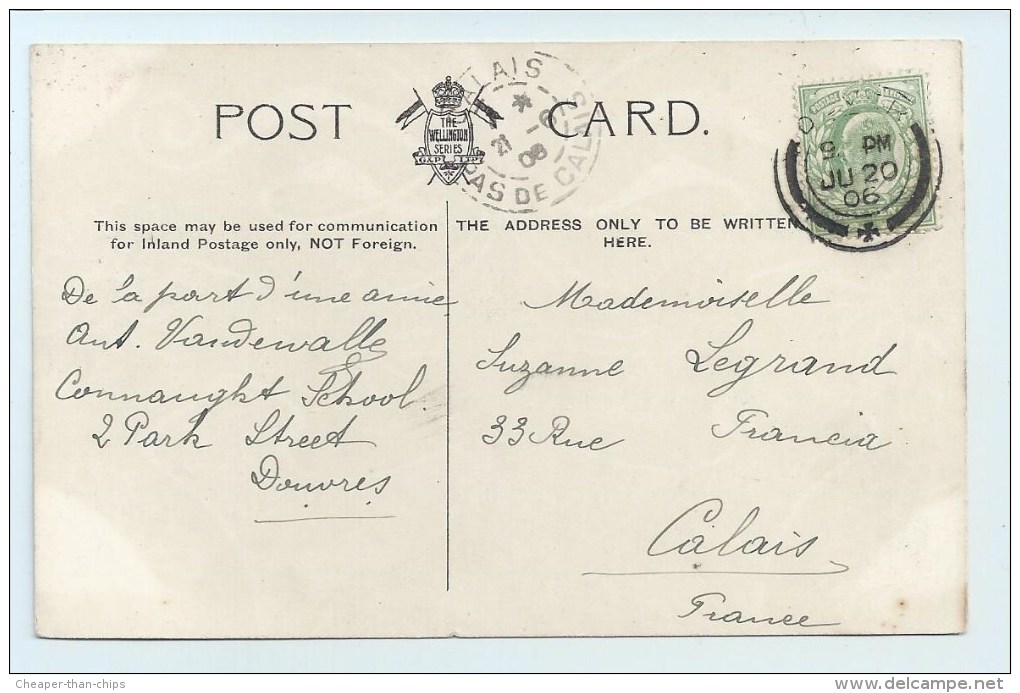 POST CARD.
THE
WELLINGTON
SERIES
G.D.&D. L.
CALAIS
PAS DE CALAIS
21
06
PM
JU 20
06
This space may be used for communication
for Inland Postage only, NOT Foreign.
THE ADDRESS ONLY TO BE WRITTEN
HERE.
De la part d'une amie
Ant. Vandewalle
Connaught School.
2 Park Street
Douvres
Mademoiselle
Suzanne Legrand
33 Rue Francia
Calais
France
Cheaper-than-chips
www.delcampe.net